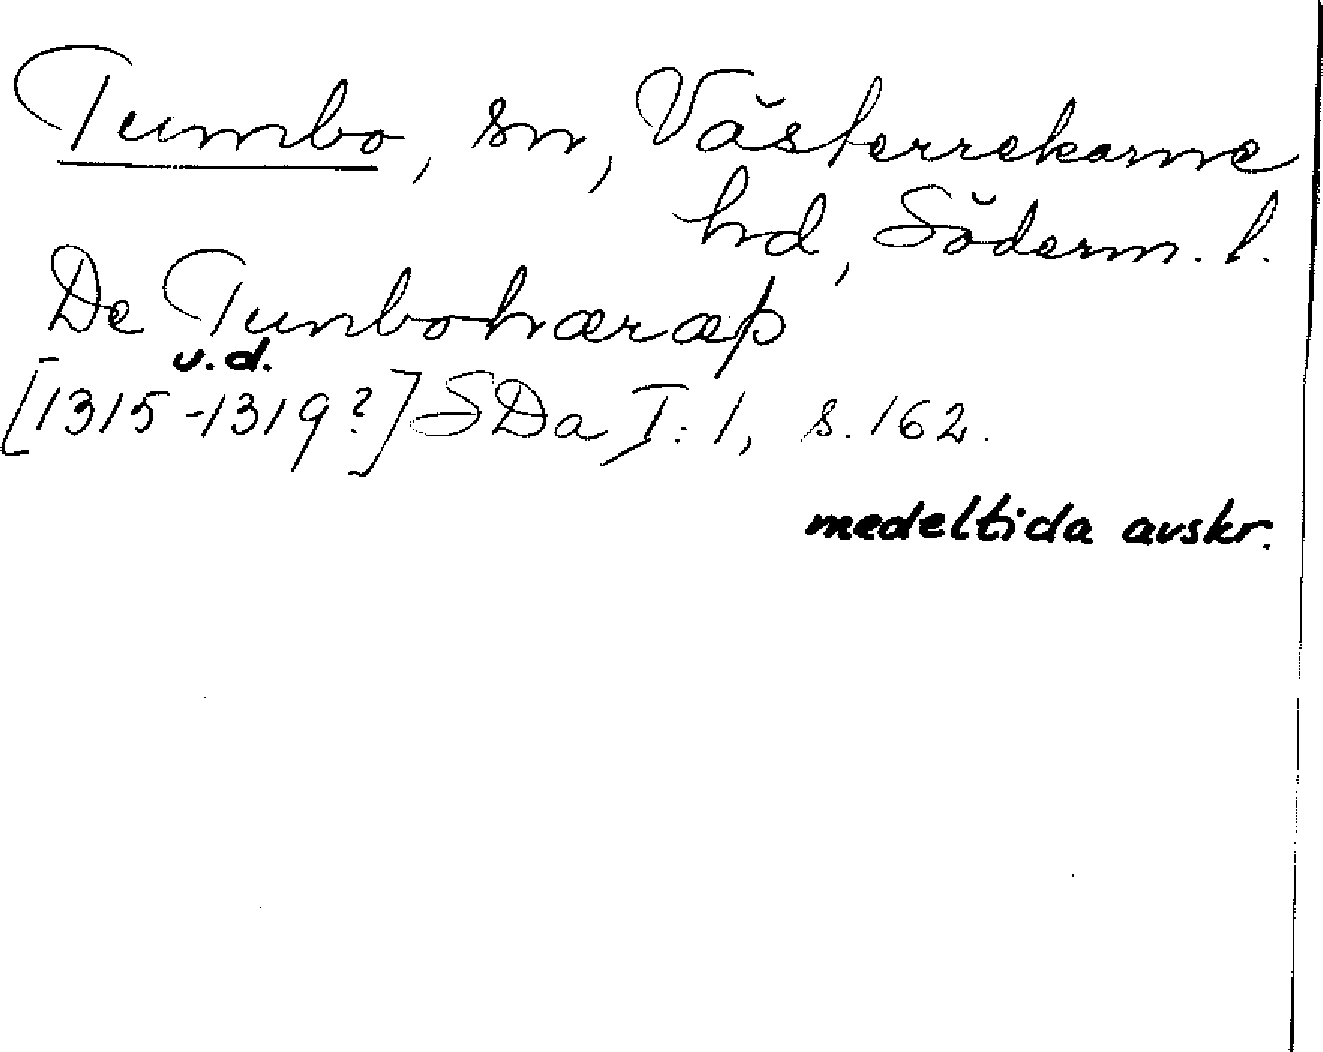 Tumbo, sn, Västerrekarne
hd, Söderm. l.
De Tunbohæræþ
u.d.
[1315-1319?] SDa I:1, s. 162.
medeltida avskr.